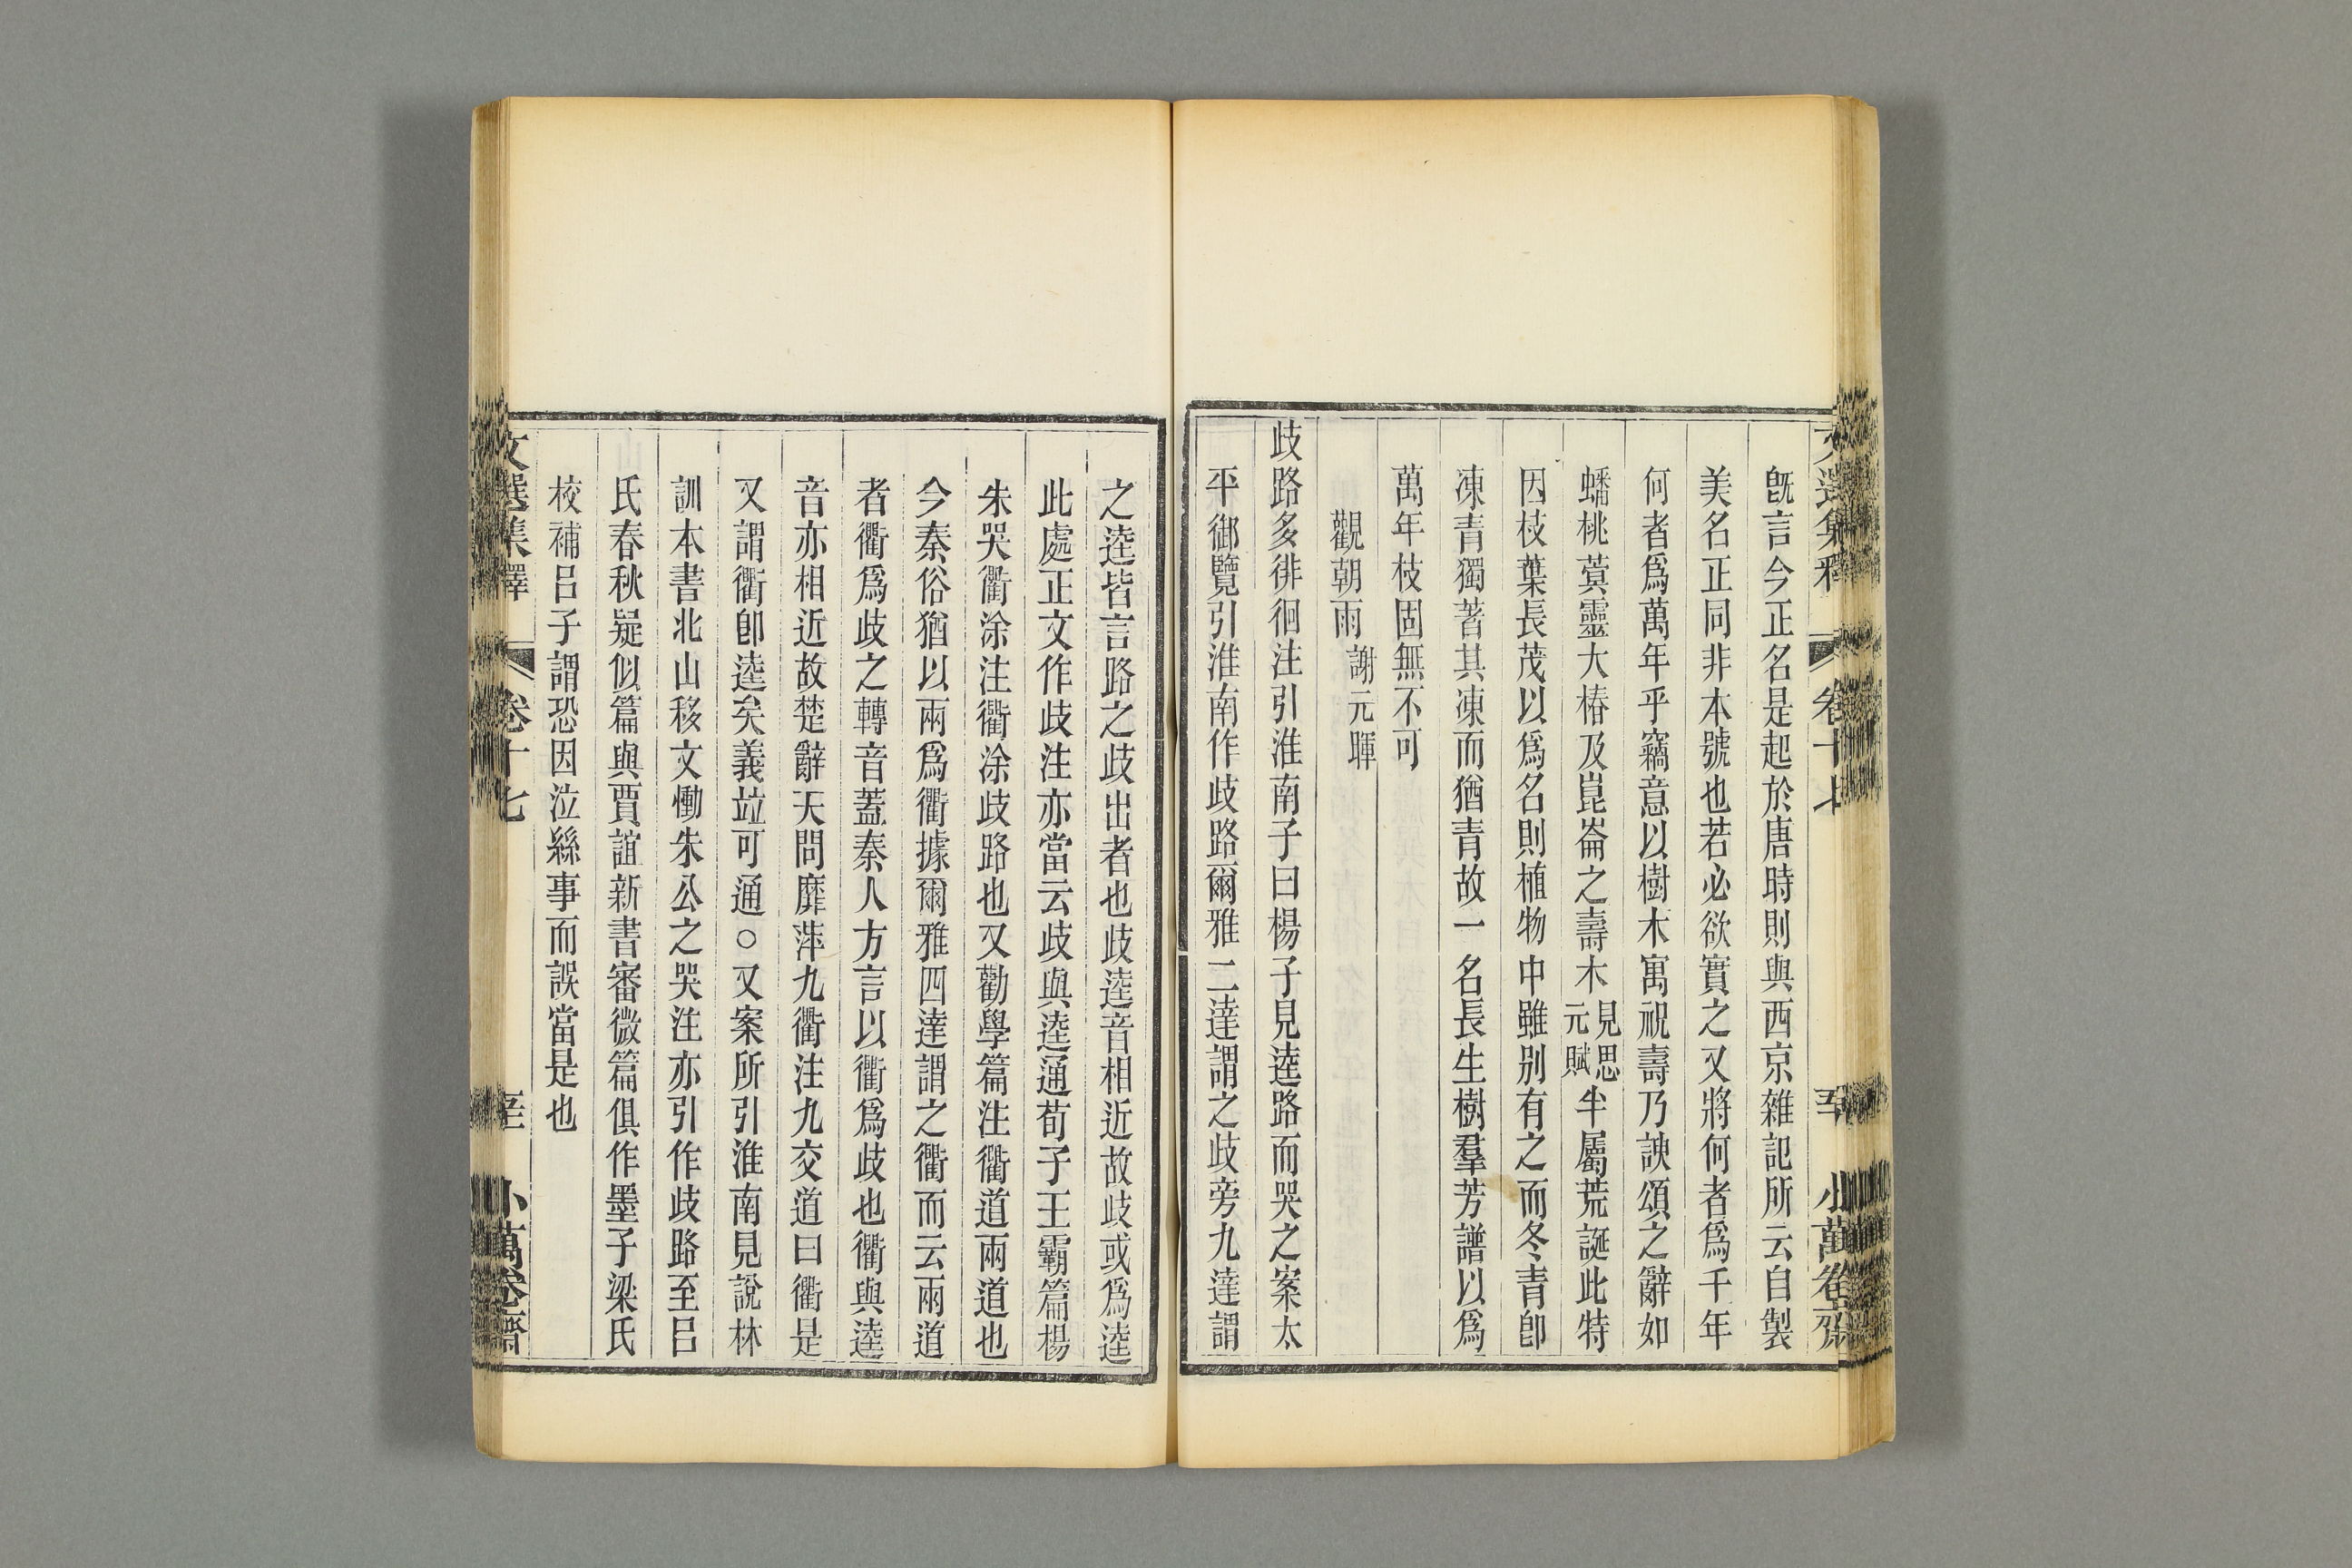 既言今正名是起於唐時則與西京雜記所云自製
美名正同非本號也若必欲實之又將何者爲千年
何者爲萬年乎竊意以樹木寓祝壽乃諛頌之辭如
蟠桃蓂靈大椿及崑崙之壽木見思元賦半屬荒誕此特
因枝葉長茂以爲名則植物中雖别有之而冬青卽
凍青獨著其凍而猶青故一名長生樹羣芳譜以爲
萬年枝固無不可
觀朝雨 謝元暉
歧路多徘徊注引淮南子曰楊子見逵路而哭之案太
平御覽引淮南作歧路爾雅二達謂之歧旁九達謂
之逵皆言路之歧出者也歧逵音相近故歧或爲逵
此處正文作歧注亦當云歧與逵通荀子王霸篇楊
朱哭衢涂注衢涂歧路也又勸學篇注衢道兩道也
今秦俗猶以兩爲衢據爾雅四達謂之衢而云兩道
者衢爲歧之轉音蓋秦人方言以衢爲歧也衢與逵
音亦相近故楚辭天問靡蓱九衢注九交道曰衢是
又謂衢卽逵矣義竝可通○又案所引淮南見說林
訓本書北山移文慟朱公之哭注亦引作歧路至呂
氏春秋疑似篇與賈誼新書審微篇俱作墨子梁氏
校補呂子謂恐因泣絲事而誤當是也
文選集釋 卷十七 小萬卷齋